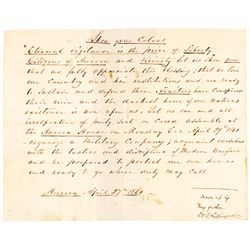 Show your Colors
"Eternal vigilance is the price of Liberty"
Citizens of Aurora and Vicinity let us show
that we fully appreciate the blessing, that we love
our Country and her institutions and are ready
to Sustain and defend them Traitors have Conspired
their ruin and the darkest hour of our Nations
existence is now upon us. Let us one and all
irrespective of party Sect or Creed assemble at
the Aurora House on Monday Eve April 29th 1861
organize a Military Company; acquaint ourselves
with the tactics and discipline of Modern Warfare
and be prepared to protect our own homes
and ready to go where duty may Call
Aurora April 27th 1861